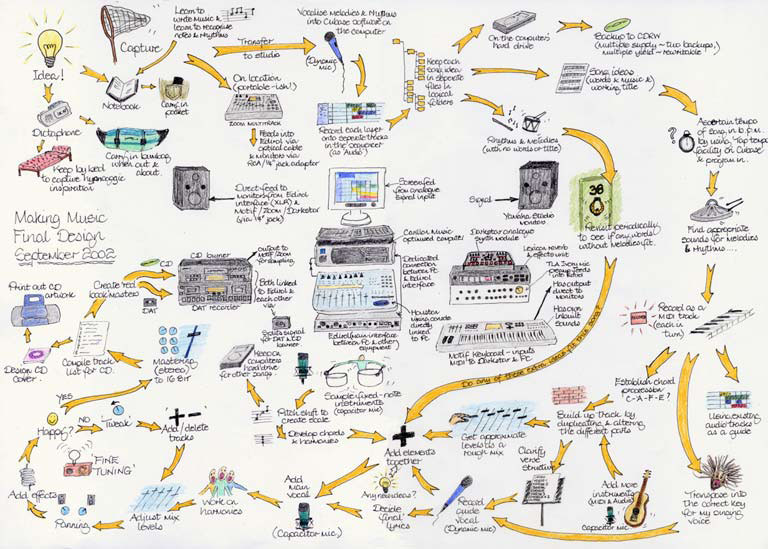 Learn to
write music &
learn to recognise
notes & rhythms
Capture
Idea!
Transfer
to studio
Vocalise melodies & rhythms
into Cubase software on
the computer
(Dynamic mic)
On the computer's
hard drive
Backup to CDRW
(multiple supply ~ two backups,
multiple yield ~ rewritable)
Keep each
song idea
in separate
files in
logical
folders
Song ideas
(words & music &
working title)
Notebook
Carry in
pocket
On location
(portable-ish!)
ZOOM MULTITRACK
Record each layer
onto separate tracks
in the sequencer
(as Audio)
Rhythms & melodies
(with no words or title)
Ascertain tempo
of song in b.p.m.
by using 'tap tempo'
facility on Cubase
& program in.
Dictaphone
Carry in bumbag
when out &
about.
Keep by bed
to capture hypnagogic
inspiration
Feeds into
Edirol via
optical cable
& monitors via
RCA/¼" jack adaptor
Direct feed to
monitors from Edirol
interface (XLR) &
Motif/Zoom/Darkstar
(via ¼" jack)
Screen fed
from analogue
signal input
Signal
Yamaha Studio
monitors
36
Revisit periodically
to see if any words
without melodies fit.
Find appropriate
sounds for melodies
& rhythms....
Making Music
Final Design
September 2002
Carillon Music
optimised computer
Darkstar analogue
synth module
Lexicon reverb
& effects unit
TLA Ivory mic
preamp feeds
into Edirol
Dedicated
connection
between PC
& Edirol
interface
Houston
mixing console
directly
linked
to PC
Has output
direct to
monitors
Has own
inbuilt
sounds
Motif Keyboard - inputs
MIDI to Darkstar & PC
Edirol main interface
between PC & other
equipment
CD
CD burner
output to
Motif/Zoom
for sampling
Create 'red
book' masters
DAT
DAT recorder
Both linked
to Edirol &
each other
via
Sends signal
for DAT & CD
burner
Print out CD
artwork
Design CD
cover.
Compile track
list for CD.
Mastering
(stereo)
to 16 Bit
Keep on
computer's
hard drive
for other songs
Sample fixed-note
instruments
(capacitor mic)
Pitch shift to
create scale
Develop chords
& harmonies
Do any of these extra ideas fit this song?
Record as a
MIDI track
(each in
turn)
RECORD
Establish chord
progression
C-A-F-E?
Using existing
audio tracks
as a guide
Build up track by
duplicating & altering
the different parts
Get approximate
levels to a
rough mix
Add elements
together
Clarify
verse
structure
Add more
instruments
(MIDI & Audio)
Capacitor mic
Transpose into
the correct key
for my singing
voice
YES
Happy?
NO
Tweak
Add/delete
tracks
'FINE
TUNING'
Add effects
Panning
Adjust mix
levels
Work on
harmonies
Add
main
vocal
(Capacitor mic)
Any new ideas?
Decide
'final'
lyrics
Record
guide
vocal
(Dynamic mic)